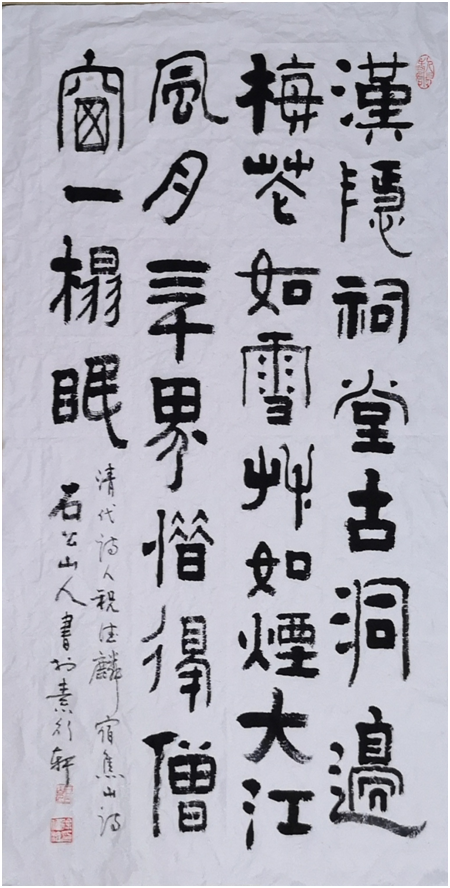 漢隱祠堂古洞邊
梅花如雪艸如煙大江
風月三千界惜得僧
窗一榻眠
清代詩人祝德麟 宿焦山詩
石公山人書於素行軒